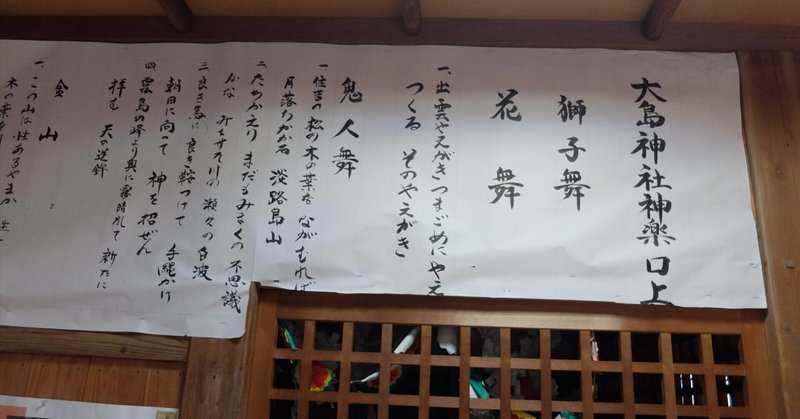 大島神社神楽口上
獅子舞
花舞
一、出雲やえがきつまごめにやえ
つくる そのやえがき
鬼人舞
一 住吉の松の木の葉を ながむれば
月落ちかか 淡路島山
二 たちかえり まだもみまくの不思議
かな みもすそ川の瀬々の白波
三 良き馬に良き鞍つけて 手縄かけ
朝日に向って 神を招ぜん
四 霧島の峰より奥に霧晴れて 新たに
拝む 天の逆鉾
金山
一、この山は性あるやまか
木の葉